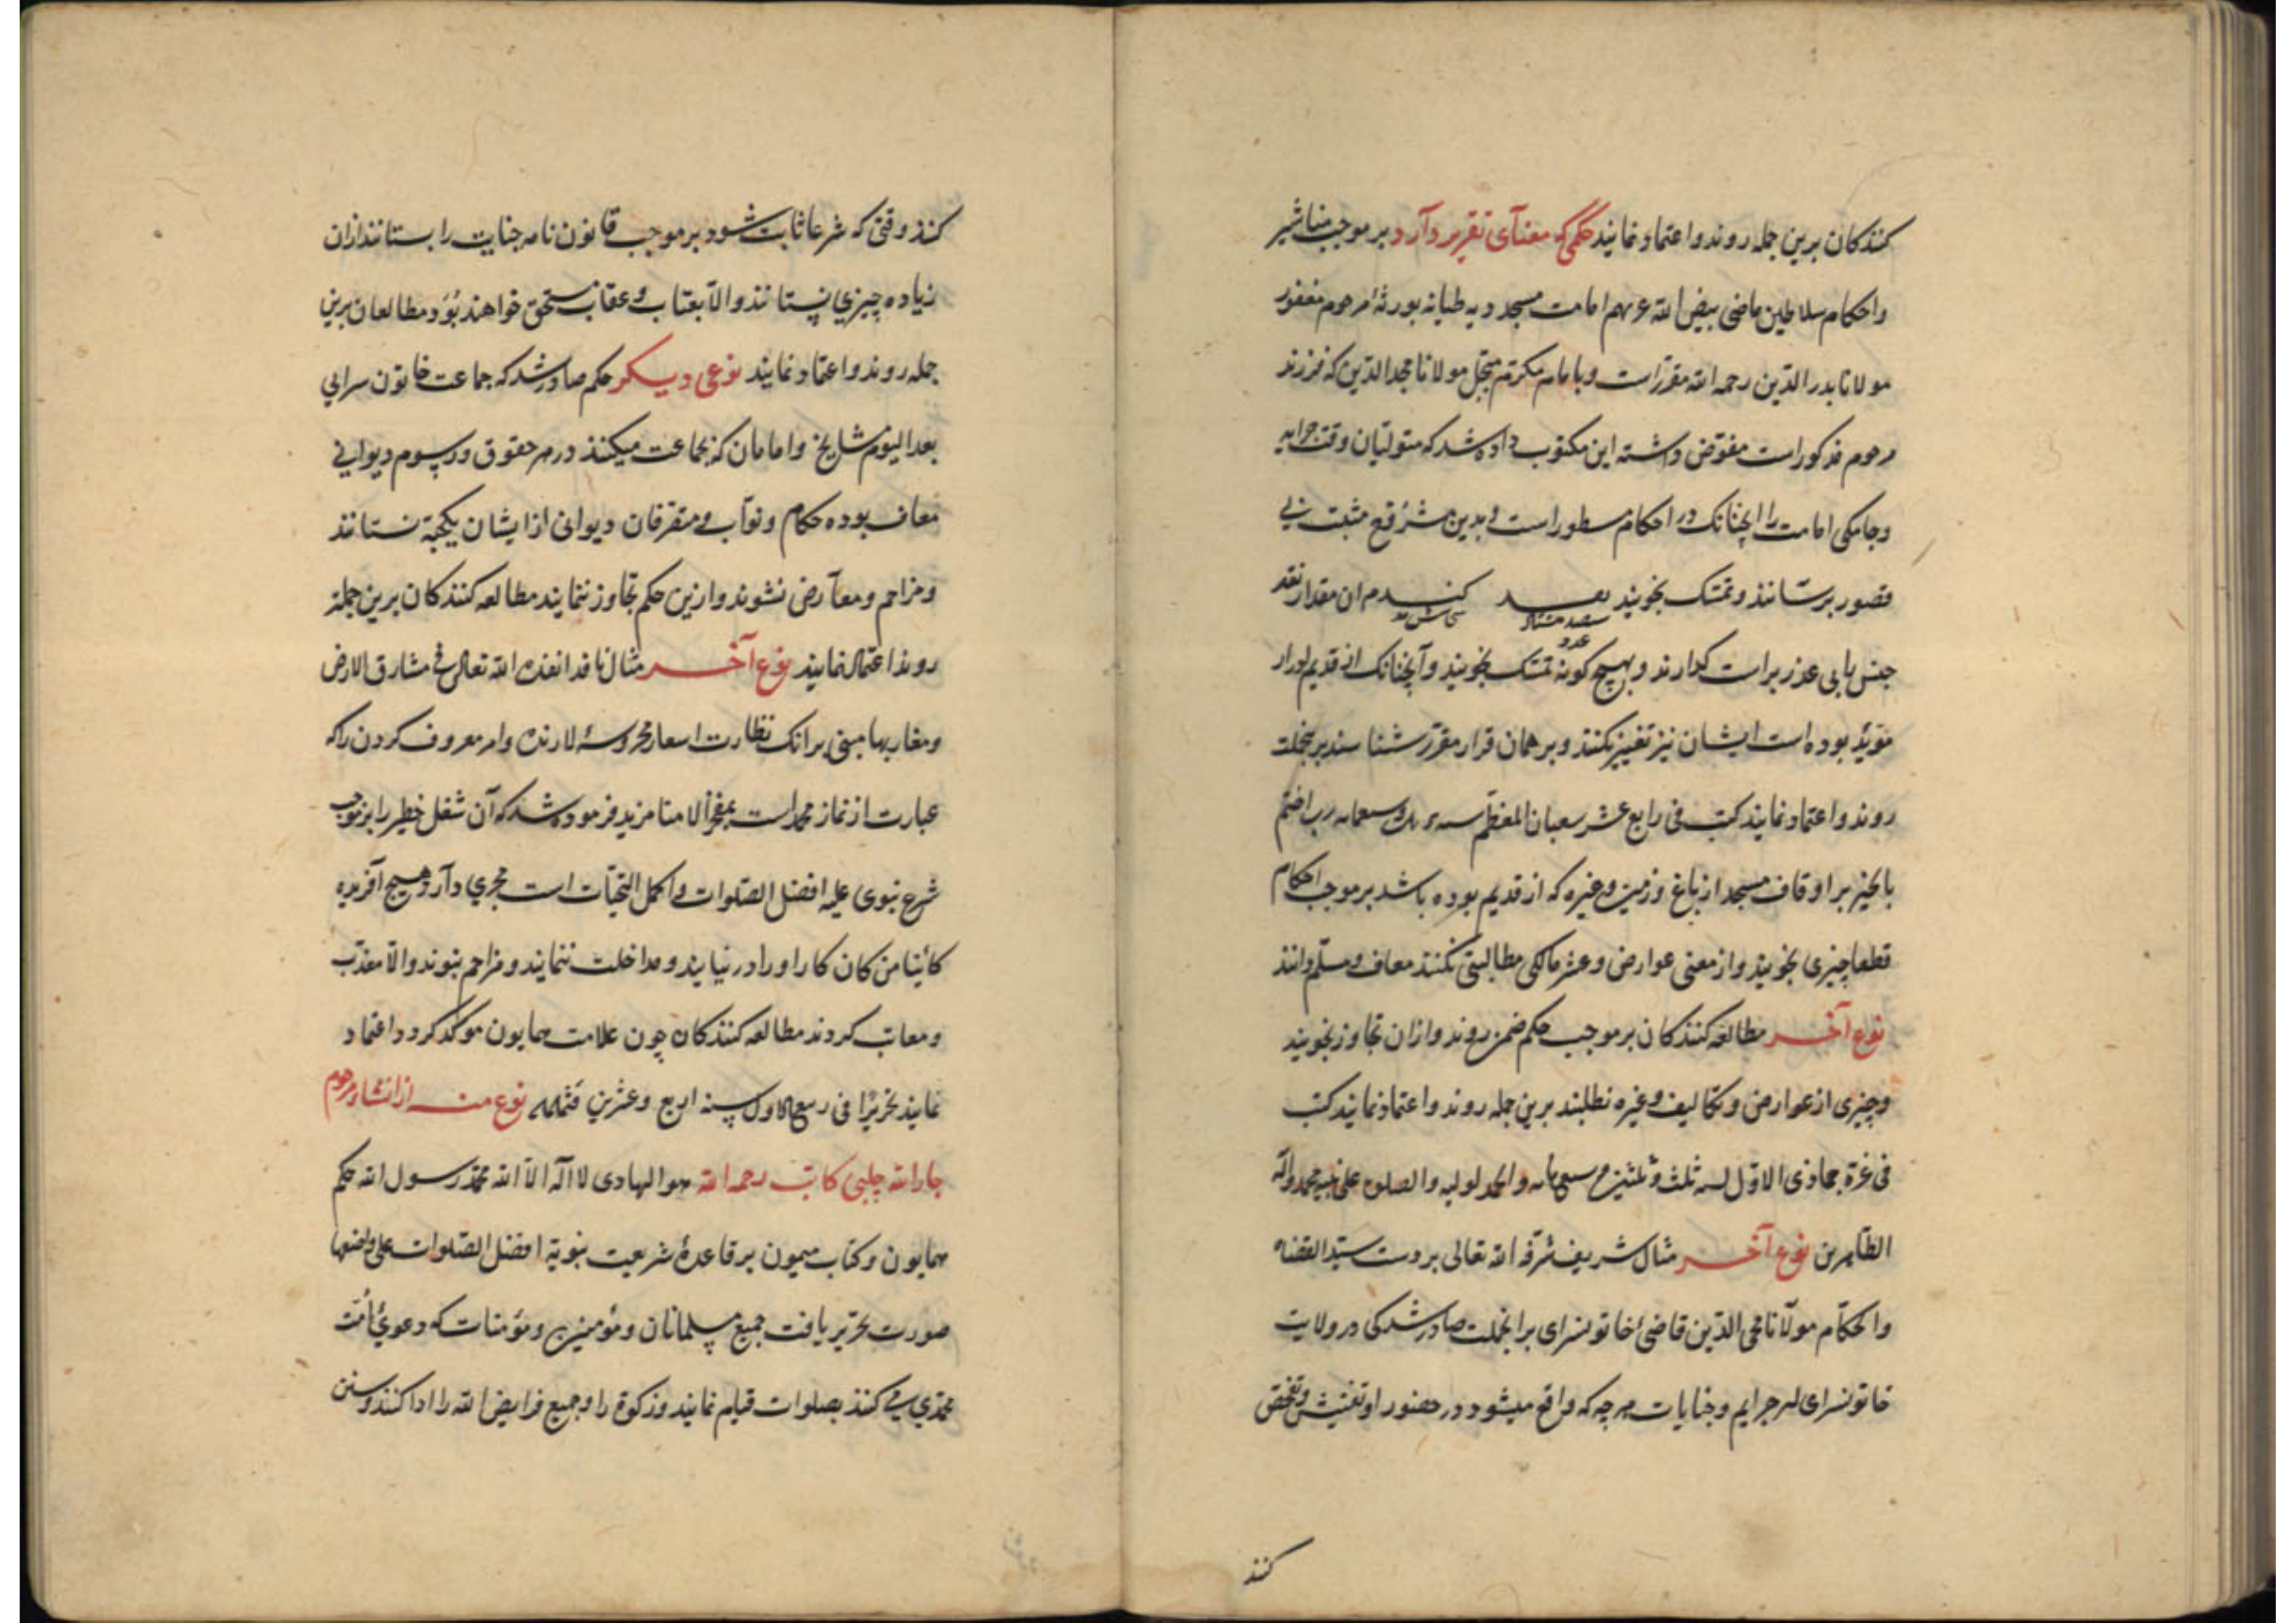 کنندکان برین جمله روند و اعتماد نمایند حکمی که معنآی تقریر دآرد بر موجب مناشیر
واحکام سلاطین ماضی بیض الله غرتهم امامت مسجد دیه طیانه بورثهٔ مرحوم مغفور
مولانا بدر الدّین رحمه الله مقرّرست و با امام مکرّم مبجّل مولانا مجد الدّین که فرزند
مرحوم مذکوراست مفوّض داشته این مکتوب داده شد که متولّیان وقت جرایه
وجامکی امامت را آنچنانک در احکام مسطور است و بدین مشرّفی مثبت بی
قصور برسّانند و تمسّک نجویند نقد کندم ان مقدار نقد
عدد
جنس بابی عذر برات کذارند و بهیچ کونه تمسّک نجویند و آنچنانک از قدیم ادرار
مؤیّد بوده است ایشان نیز تغییر نکنند و بر همان قرار مقرّر شناسند برینجملت
روند و اعتماد نمایند کتب فی رابع عشر شعبان المعظّم رب اختم
بالخیر بر اوقاف مسجد از باغ و زمین و غیره که از قدیم بوده باشد بر موجب احکام
قطعا چیزی نجویند و از معنی عوارض و عشر مالکی مطالبتی نکنند معاف و مسلّم دانند
نوع آخر مطالعه کنندکان بر موجب حکم ضمن روند و ازان تجاوز نجویند
وچیزی از عوارض و تکالیف و غیره نطلبند برین جمله روند و اعتماد نمایند کتب
فی غرّة جماذی الاوّل لسنه ثلث و ثلثین و سبعمایه والحمد لولیه والصلوة علی نبیه محمد وآله
الطّاهرین نوع آخر مثال شریف شرّفه الله تعالی بر دست سیّد القضاه
والحکّام مولآنا محی الدّین قاضیٔ خاتونسرای برانجملت صادر شد کی در ولایت
خاتونسرای هر جرایم و جنایات هر چه که واقع میشود در حضور او تفتیش و تفحّص
کنند
کنند وقتی که شرعا ثابت شود بر موجب قانون نامه جنایت را بستانند ازان
زیاده چیزی نپستانند والّا بعتاب و عقاب مستحقّ خواهند بُوَد مطالعان برین
جمله روند و اعتماد نمایند نوعی دیسکر حکم صادر شد که جماعت خاتون سرایی
بعد الیوم مشایخ و امامان که جماعت میکنند در هر حقوق و رسوم دیوانی
معاف بوده حکام و نوّاب و متصرفان دیوانی از ایشان یکحبّة نستانند
ومزاحم و معآرض نشوند و ازین حکم تجاوز ننمایند مطالعه کنندکان برین جملة
روند اعتماد نمایند نوع آخر مثال نافد انفذه الله تعالی فی مشارق الارض
ومغاربها مبنی برانک نظارت اسعار محروسهٔ لارنده و امر معروف کردن را که
عبارت از نماز محمداست بمفخر الامنا مزید فرموده شد که آن شغل خطیر را بر موجب
شرع نبوی علیه افضل الصّلوات و اکمل التحیّات است مجری دآرد و هیچ آفریده
کائنا من کان کار او را در نیایند و مداخلت ننمایند و مزاحم نبوند و الّا معذّب
و معاتب کردند مطالعه کنندکان چون علامت همایون موکّد کردد اعتماد
نمایند تحریرًا فی ربیع الاول سنه اربع و عشرین نوع منه از انشاء مرحوم
جار الله چلبی کاتب رحمه الله هو الهادی لا اله الّا الله محمّد رسول الله حکم
همایون و کتاب میمون بر قاعدهٔ شریعت نبویّة افضل الصّلوات علی واضعها
صورت تحریر یافت جمیع مسلمانان و مؤمنین و مؤمنات که دعویٔ اُمّت
محمّدی می کنند بصلوات قیام نمایند و زکوة را و جمیع فرایض الله را ادا کنند و سنن